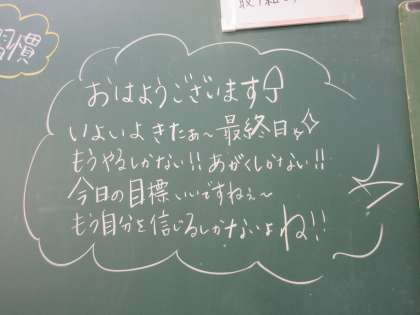 習慣
おはようございます
いよいよきたぁ～最終日
もうやるしかない!!あがくしかない!!
今日の目標いいですねぇ～
もう自分を信じるしかないよね!!